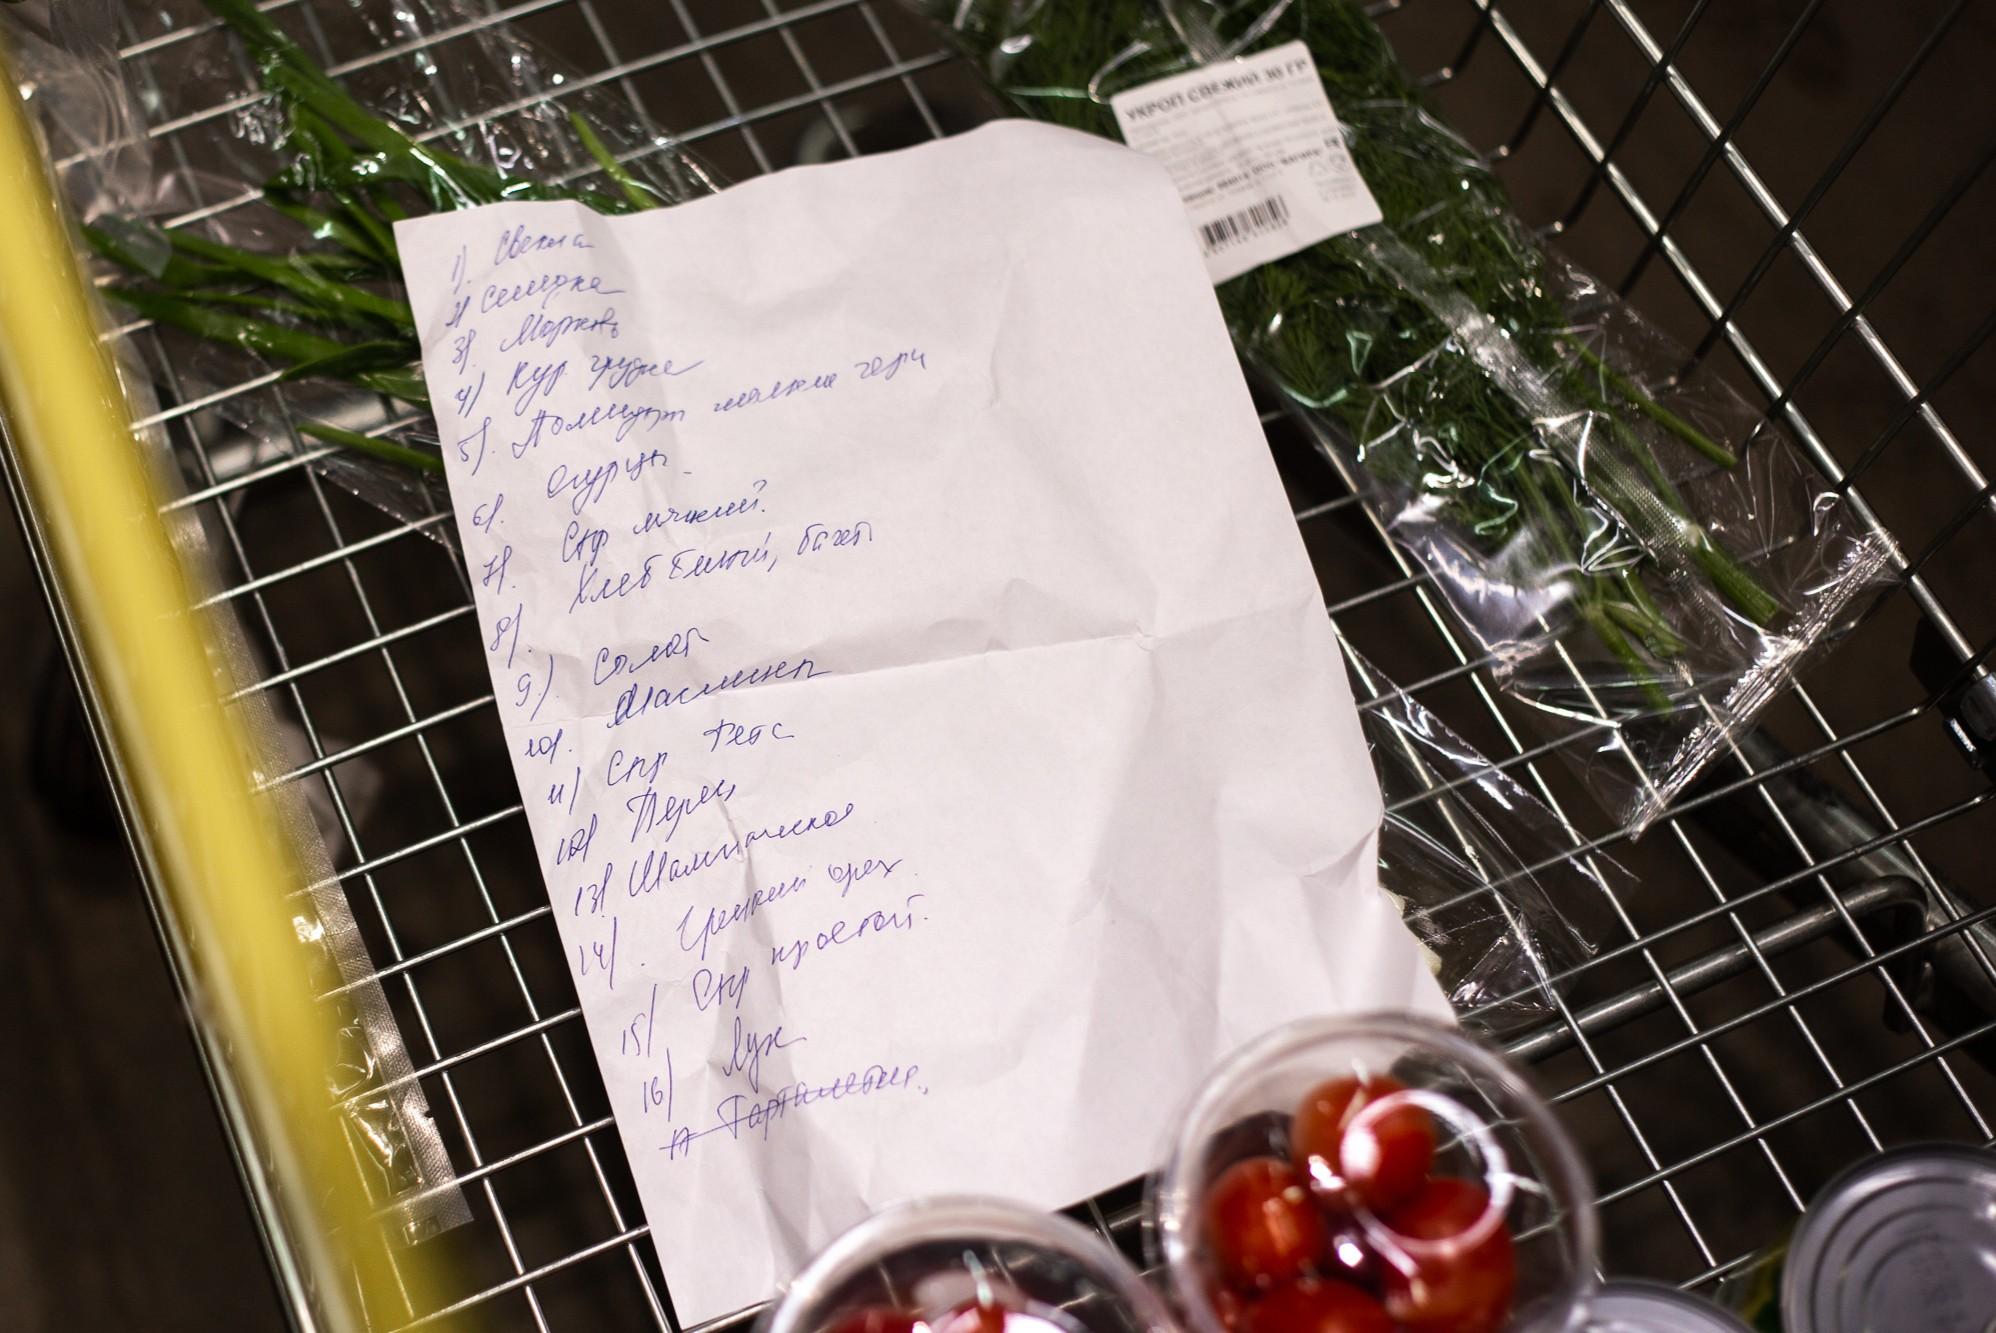 УКРОП СВЕЖИЙ 30 ГР
1). Свекла
2) Селедка
3). Морковь
4) Кур грудке
5). Помидоры мелкие черри
6). Огурцы
7). Сыр мягкий.
8). Хлеб белый, багет
9.). Салат
10). Маслины
11) Сыр Фета
12) Перец
13) Шампанское
14). Грецкий орех.
15) Сыр простой.
16) Лук
17 Тарталетки.